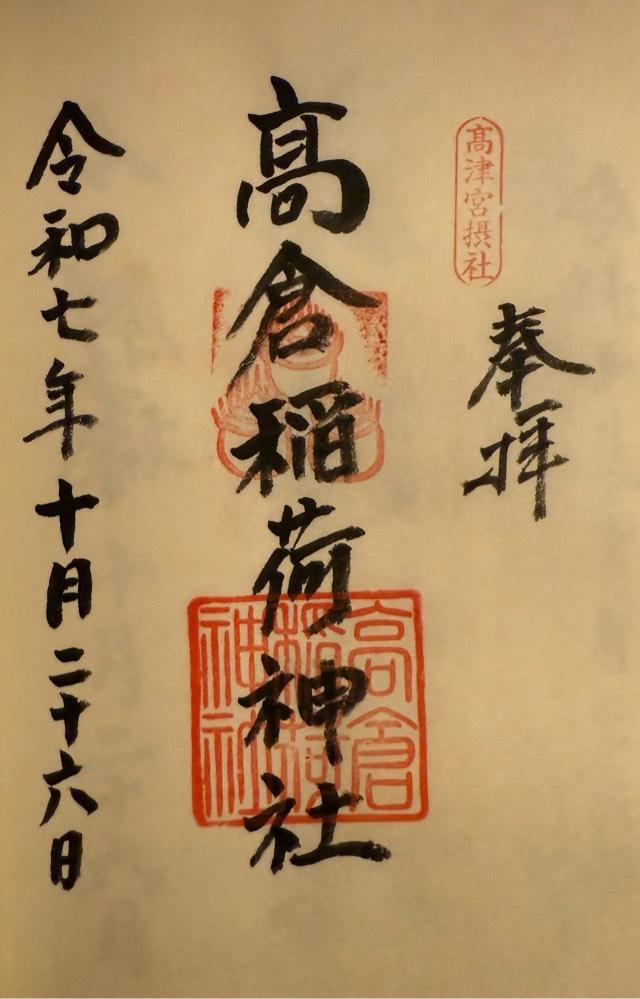 高津宮摂社
奉拝
髙倉稲荷神社
高倉
稲荷
神社
令和七年十月二十六日